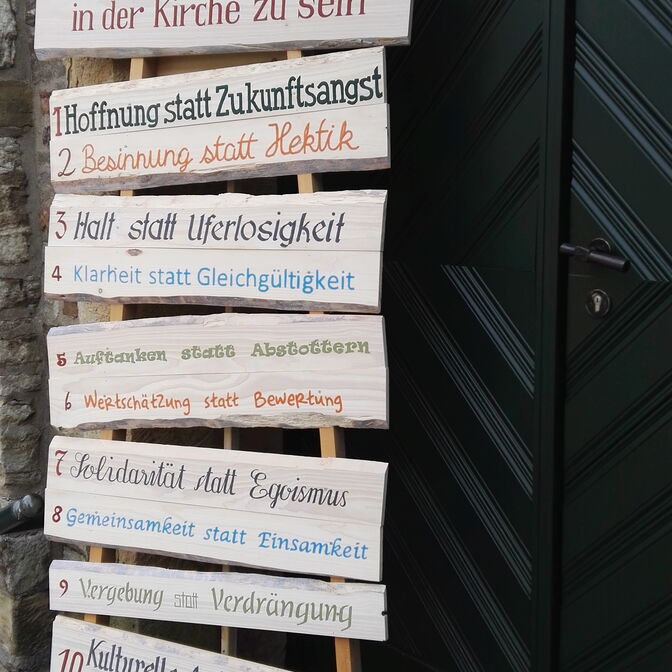 in der Kirche zu sein
1 Hoffnung statt Zukunftsangst
2 Besinnung statt Hektik
3 Halt statt Uferlosigkeit
4 Klarheit statt Gleichgültigkeit
5 Auftanken statt Abstottern
6 Wertschätzung statt Bewertung
7 Solidarität statt Egoismus
8 Gemeinsamkeit statt Einsamkeit
9 Vergebung statt Verdrängung
10